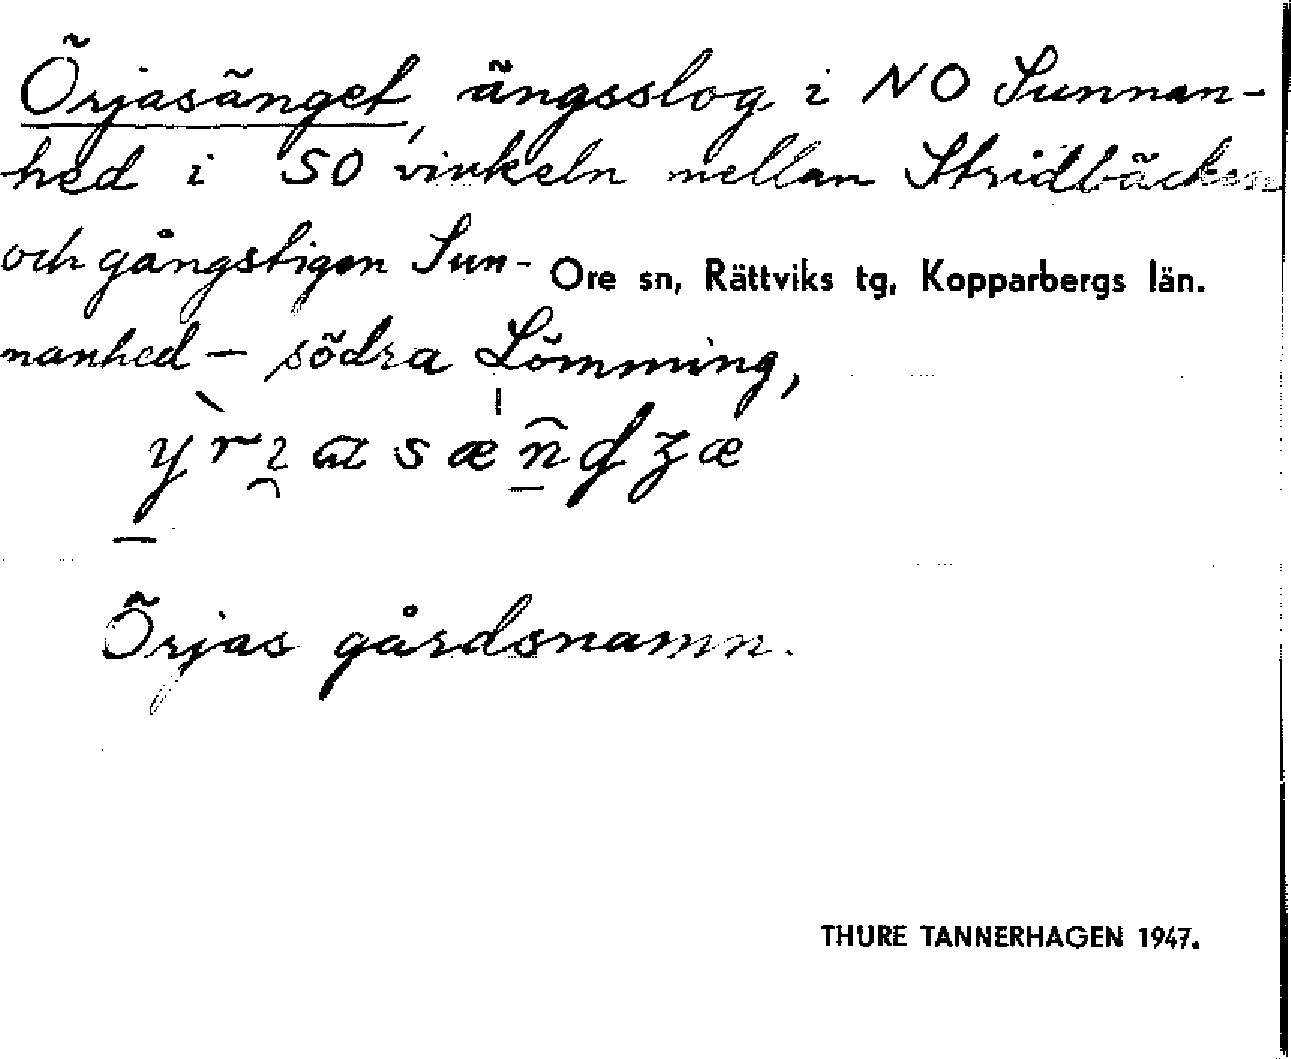 Örjasänget, ängsslog i NO Sunnan-
hed i SO vinkeln mellan Stridbäcken
och gångstigen Sun-
Ore sn, Rättviks tg, Kopparbergs län.
nanhed – södra Lömming,
Örjas gårdsnamn.
THURE TANNERHAGEN 1947.